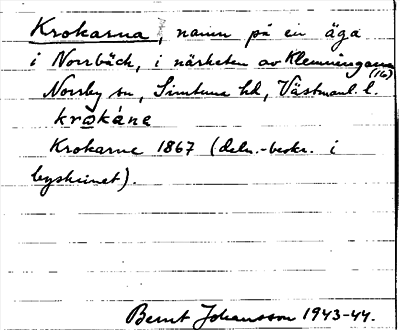 Krokarna, namn på en äga
i Norrbäck, i närheten av Klemmingarna (16)
Norrby sn, Simtuna hd, Västmanl. l.
krǒkáne
Krokarne 1867 (deln.-beskr. i
byskrinet).
Bernt Johansson 1943-44.